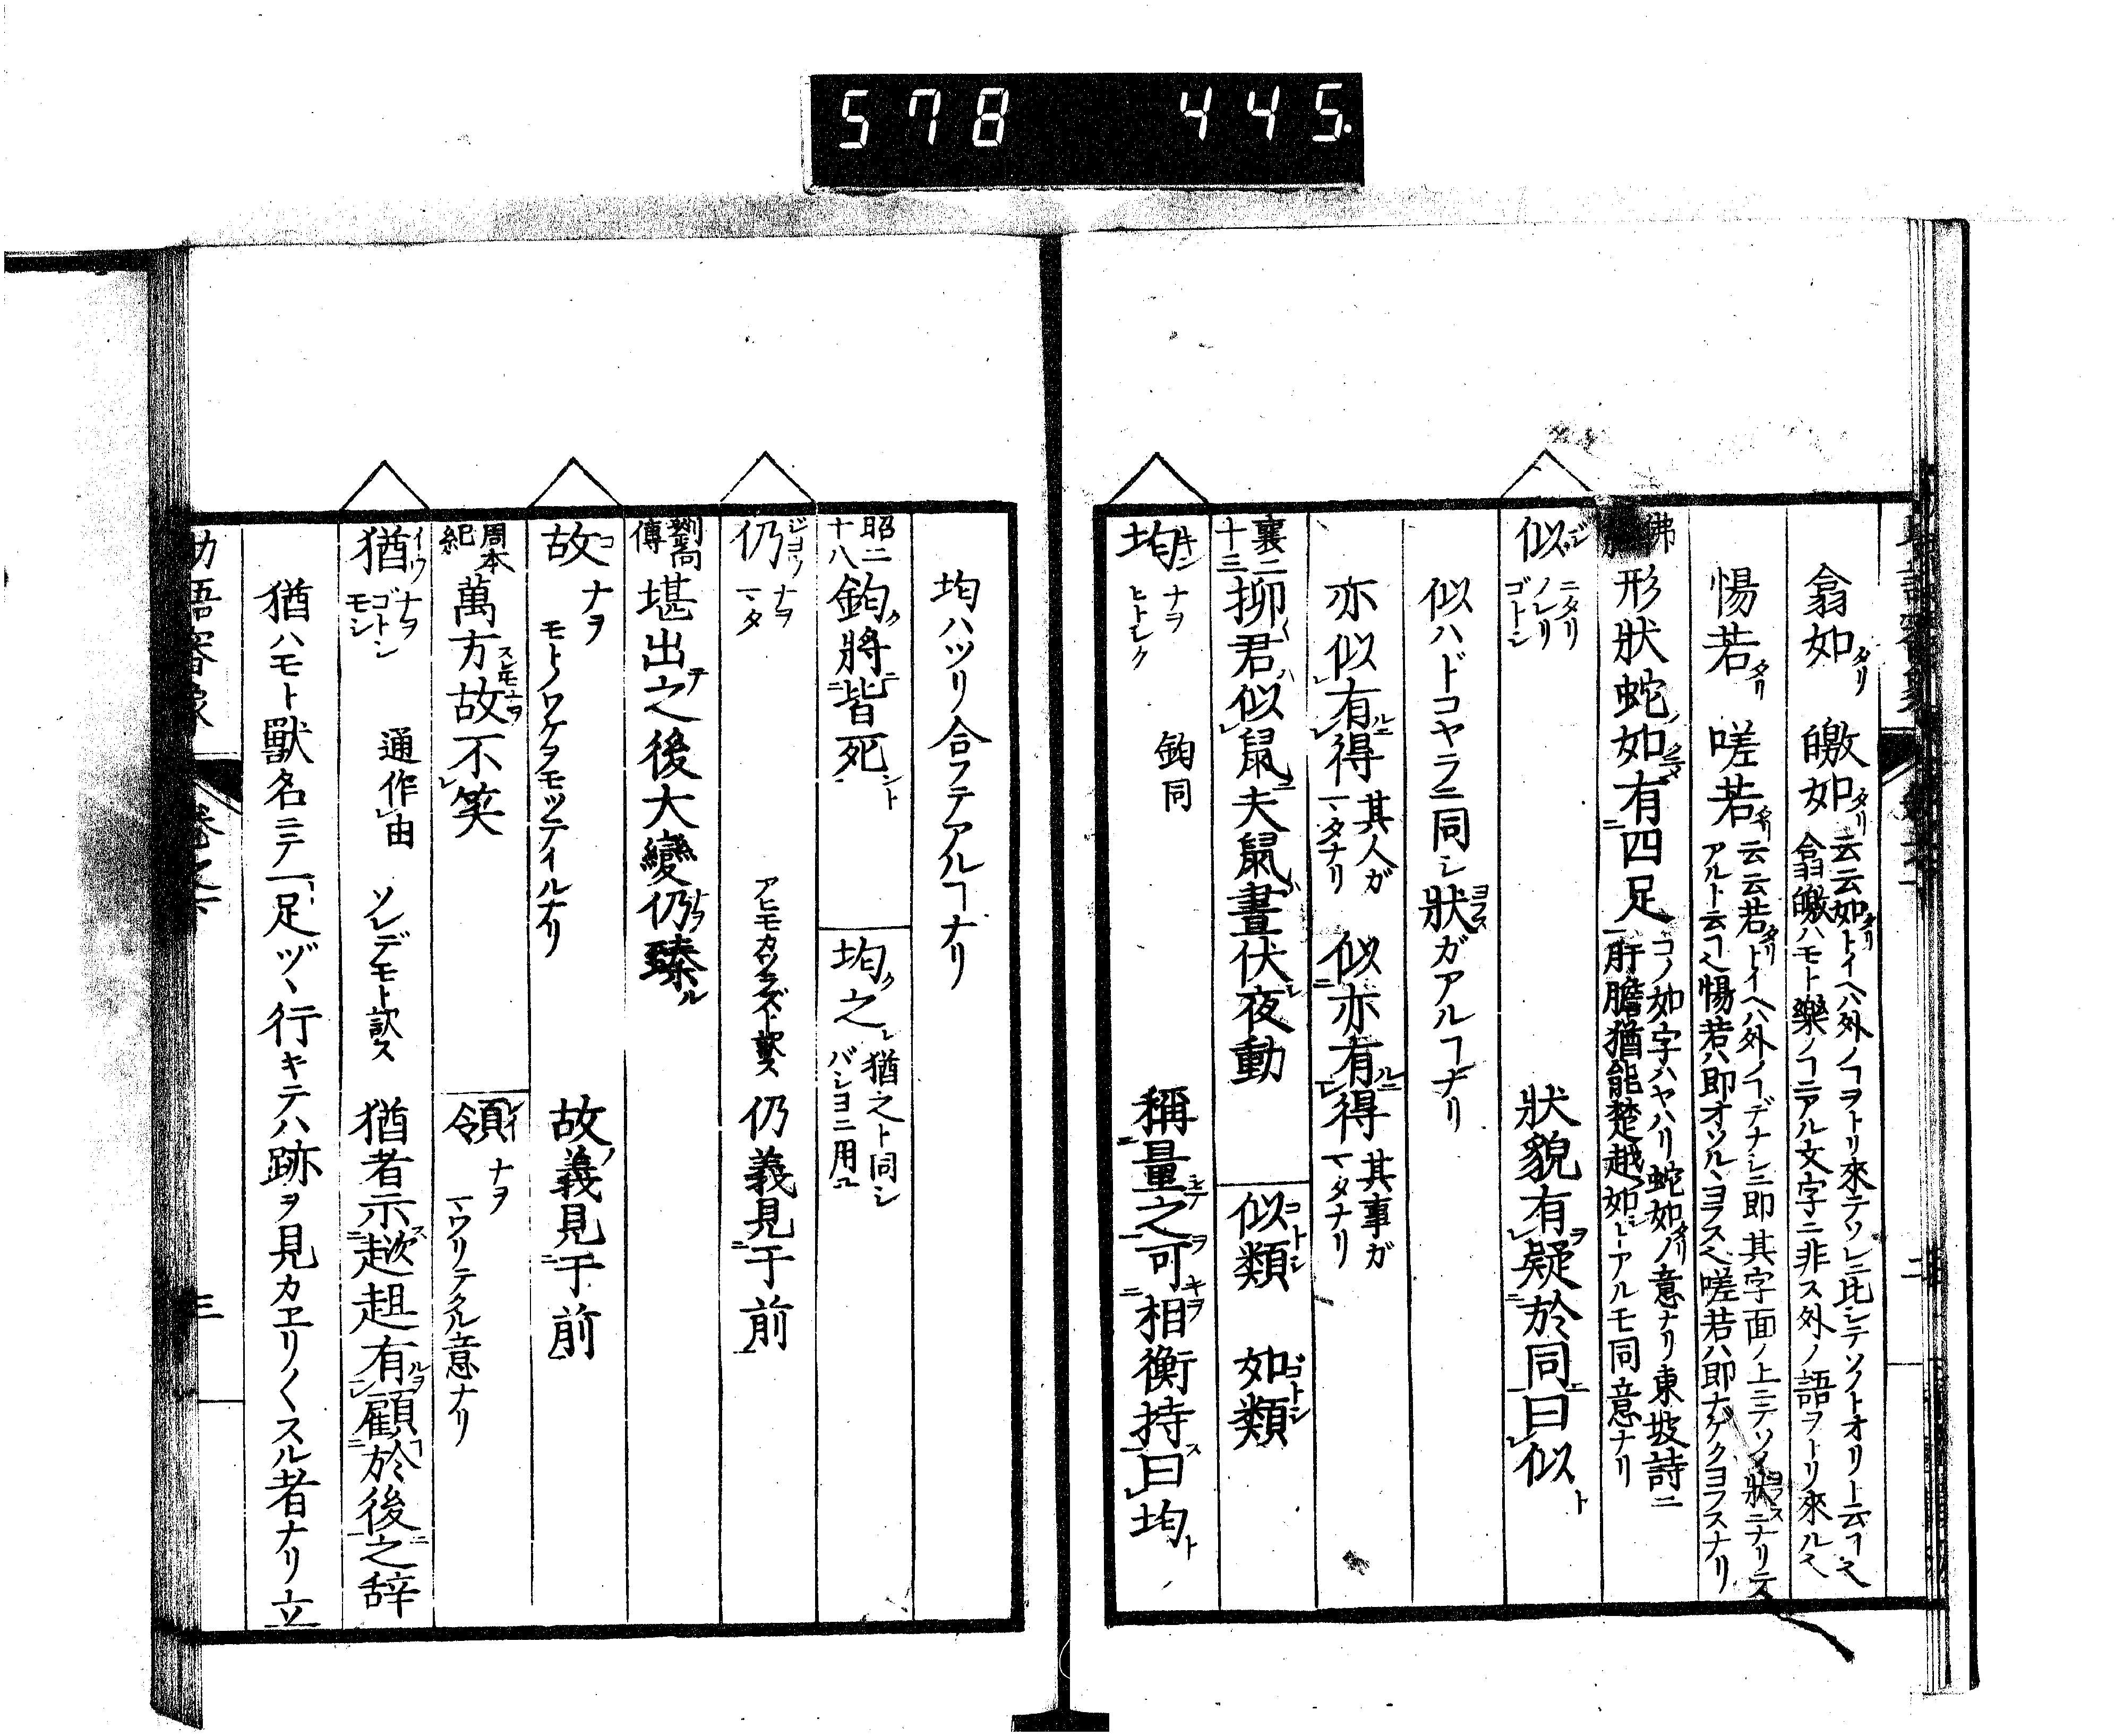 578 445.
翕如タリ 皦如タリ 云云如タリトイヘハ外ノヿヲトリ來テソレニ比シテソノトオリト云ヿヘ
翕皦ハモト樂ノヿニアル文字ニ非ス外ノ語ヲトリ來ルヘ
惕若タリ 嗟若タリ 云云若タリトイヘハ外ノヿデナシニ即其字面ノ上ニテソノ狀ヨフスニナリテ
アルト云ヿヘ惕若ハ即オソルヽヨフスヘ嗟若ハ即ナゲクヨフスナリ
形狀蛇ノ如ニシテ有四足 コノ如字ハヤハリ蛇如タリノ意ナリ東坡詩ニ
肝膽猶能楚越如シトアルモ同意ナリ
似ジ ニタリ ノレリ ゴトシ 狀貌有疑ヲ於同ニ曰似ト
似ハドコヤラニ同シ狀ヨフスガアルヿナリ
亦似有ルニ得 其人ガマタナリ 似亦有ルニ得 其事ガマタナリ
襄二十三 抑君ハ似鼠ニ夫鼠ハ晝伏シ夜動 似コトシ類 如ゴトシ類
均キン ナヲ ヒトシク 鈞同 稱量之ヲ可キヲ相衡持ス曰均ト
均ハツリ合フテアルヿナリ
昭二十八 鈞ク將ニ皆死ントス 均ク之シ 猶之ト同シバシヨニ用ユ
仍ジヨウ ナヲ マタ アヒモカワラズト訳ス 仍義見于前
劉向傳 堪出テ之後大變仍ナヲ臻ル
故コ ナヲ モトノワケヲモツテイルナリ 故ノ義見于前
周本紀 萬方スレモナヲ故不笑 領レイ ナヲ マワリテクル意ナリ
猶イウ ナヲ ゴトシ モシ 通作由 ソレデモト訳ス 猶者示ス趑趄有ルヲ顧フ於後ニ之辞
猶ハモト獸名ニテ一足ヅヽ行キテハ跡ヲ見カヱリ〱スル者ナリ立
助語審象 卷之下 三